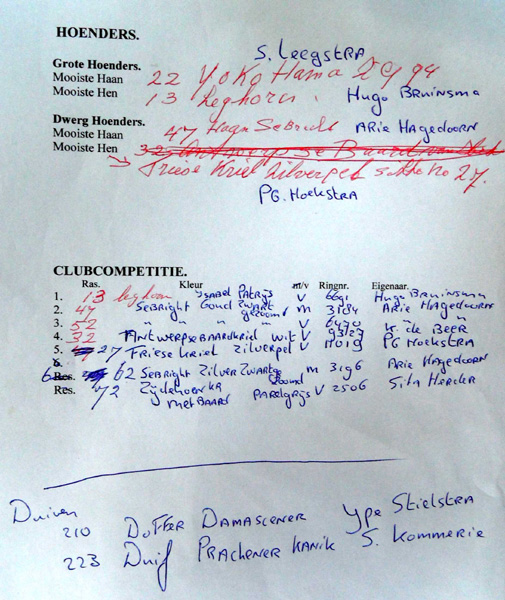 HOENDERS.
S. Leegstra
Grote Hoenders.
Mooiste Haan 22 Yokohama 94
Mooiste Hen 13 Leghorn. Hugo Bruinsma
Dwerg Hoenders.
Mooiste Haan 47 Haan Sebright Arie Hagedoorn
Mooiste Hen 32 Antwerpse Baard
Friese Kriel Zilverpel No 27.
PG. Hoekstra
CLUBCOMPETITIE.
Ras. Kleur m/v Ringnr. Eigenaar.
1. 13 leghorn Ysabel Patrijs V 6691 Hugo Bruinsma
2. 47 Sebright Goud Zwart gezoomd m 3184 Arie Hagedoorn
3. 52 " " " " V 6470 " "
4. 32 Antwerpsebaardkriel wit V K. de Beer
5. 27 Friese kriel Zilverpel V PG Hoekstra
6. Res. 62 Sebright Zilver Zwart gezoomd m 3196 Arie Hagedoorn
Res. 72 Zijdehoen KR met baard Parelgrijs V 2506 Sita
Duiven
210 Doffer Damascener Ype Stielstra
223 Duif Prachener Kanik S. Kommerie